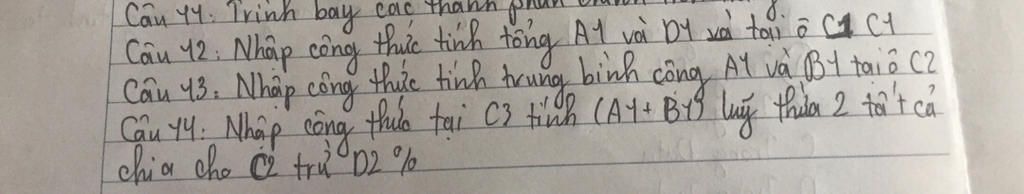 Câu 11: Trình bày các thành phần
Câu 12: Nhập công thức tính tổng A1 và D1 và tại ô C1
Câu 13: Nhập công thức tính trung bình công A1 và B1 tại ô C2
Câu 14: Nhập công thức tại C3 tính (A1+B1) luỹ thừa 2 tất cả
chia cho C2 trừ D2 %